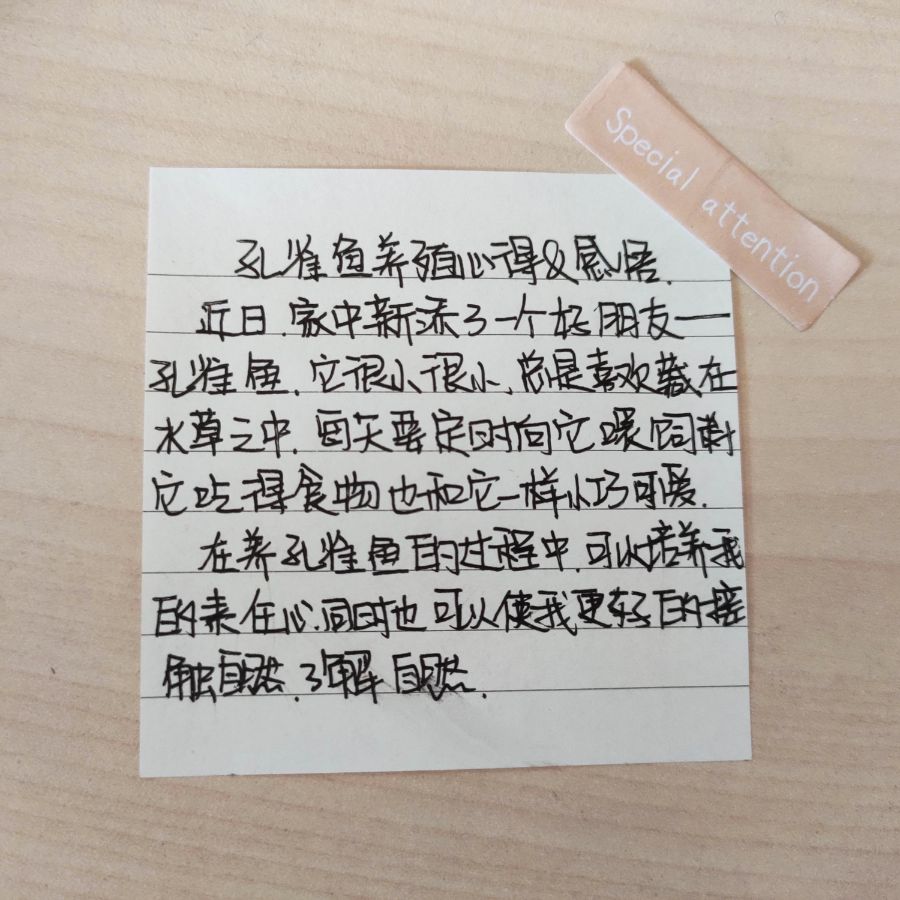 Special attention
孔雀鱼养殖心得&感悟.
近日.家中新添了一个好朋友一
孔雀鱼.它很小很小.总是喜欢藏在
水草之中.每天要定时向它喂饲料
它吃得食物也和它一样小巧可爱.
在养孔雀鱼的过程中.可以培养我
的责任心.同时也可以使我更好的接
触自然.了解自然.